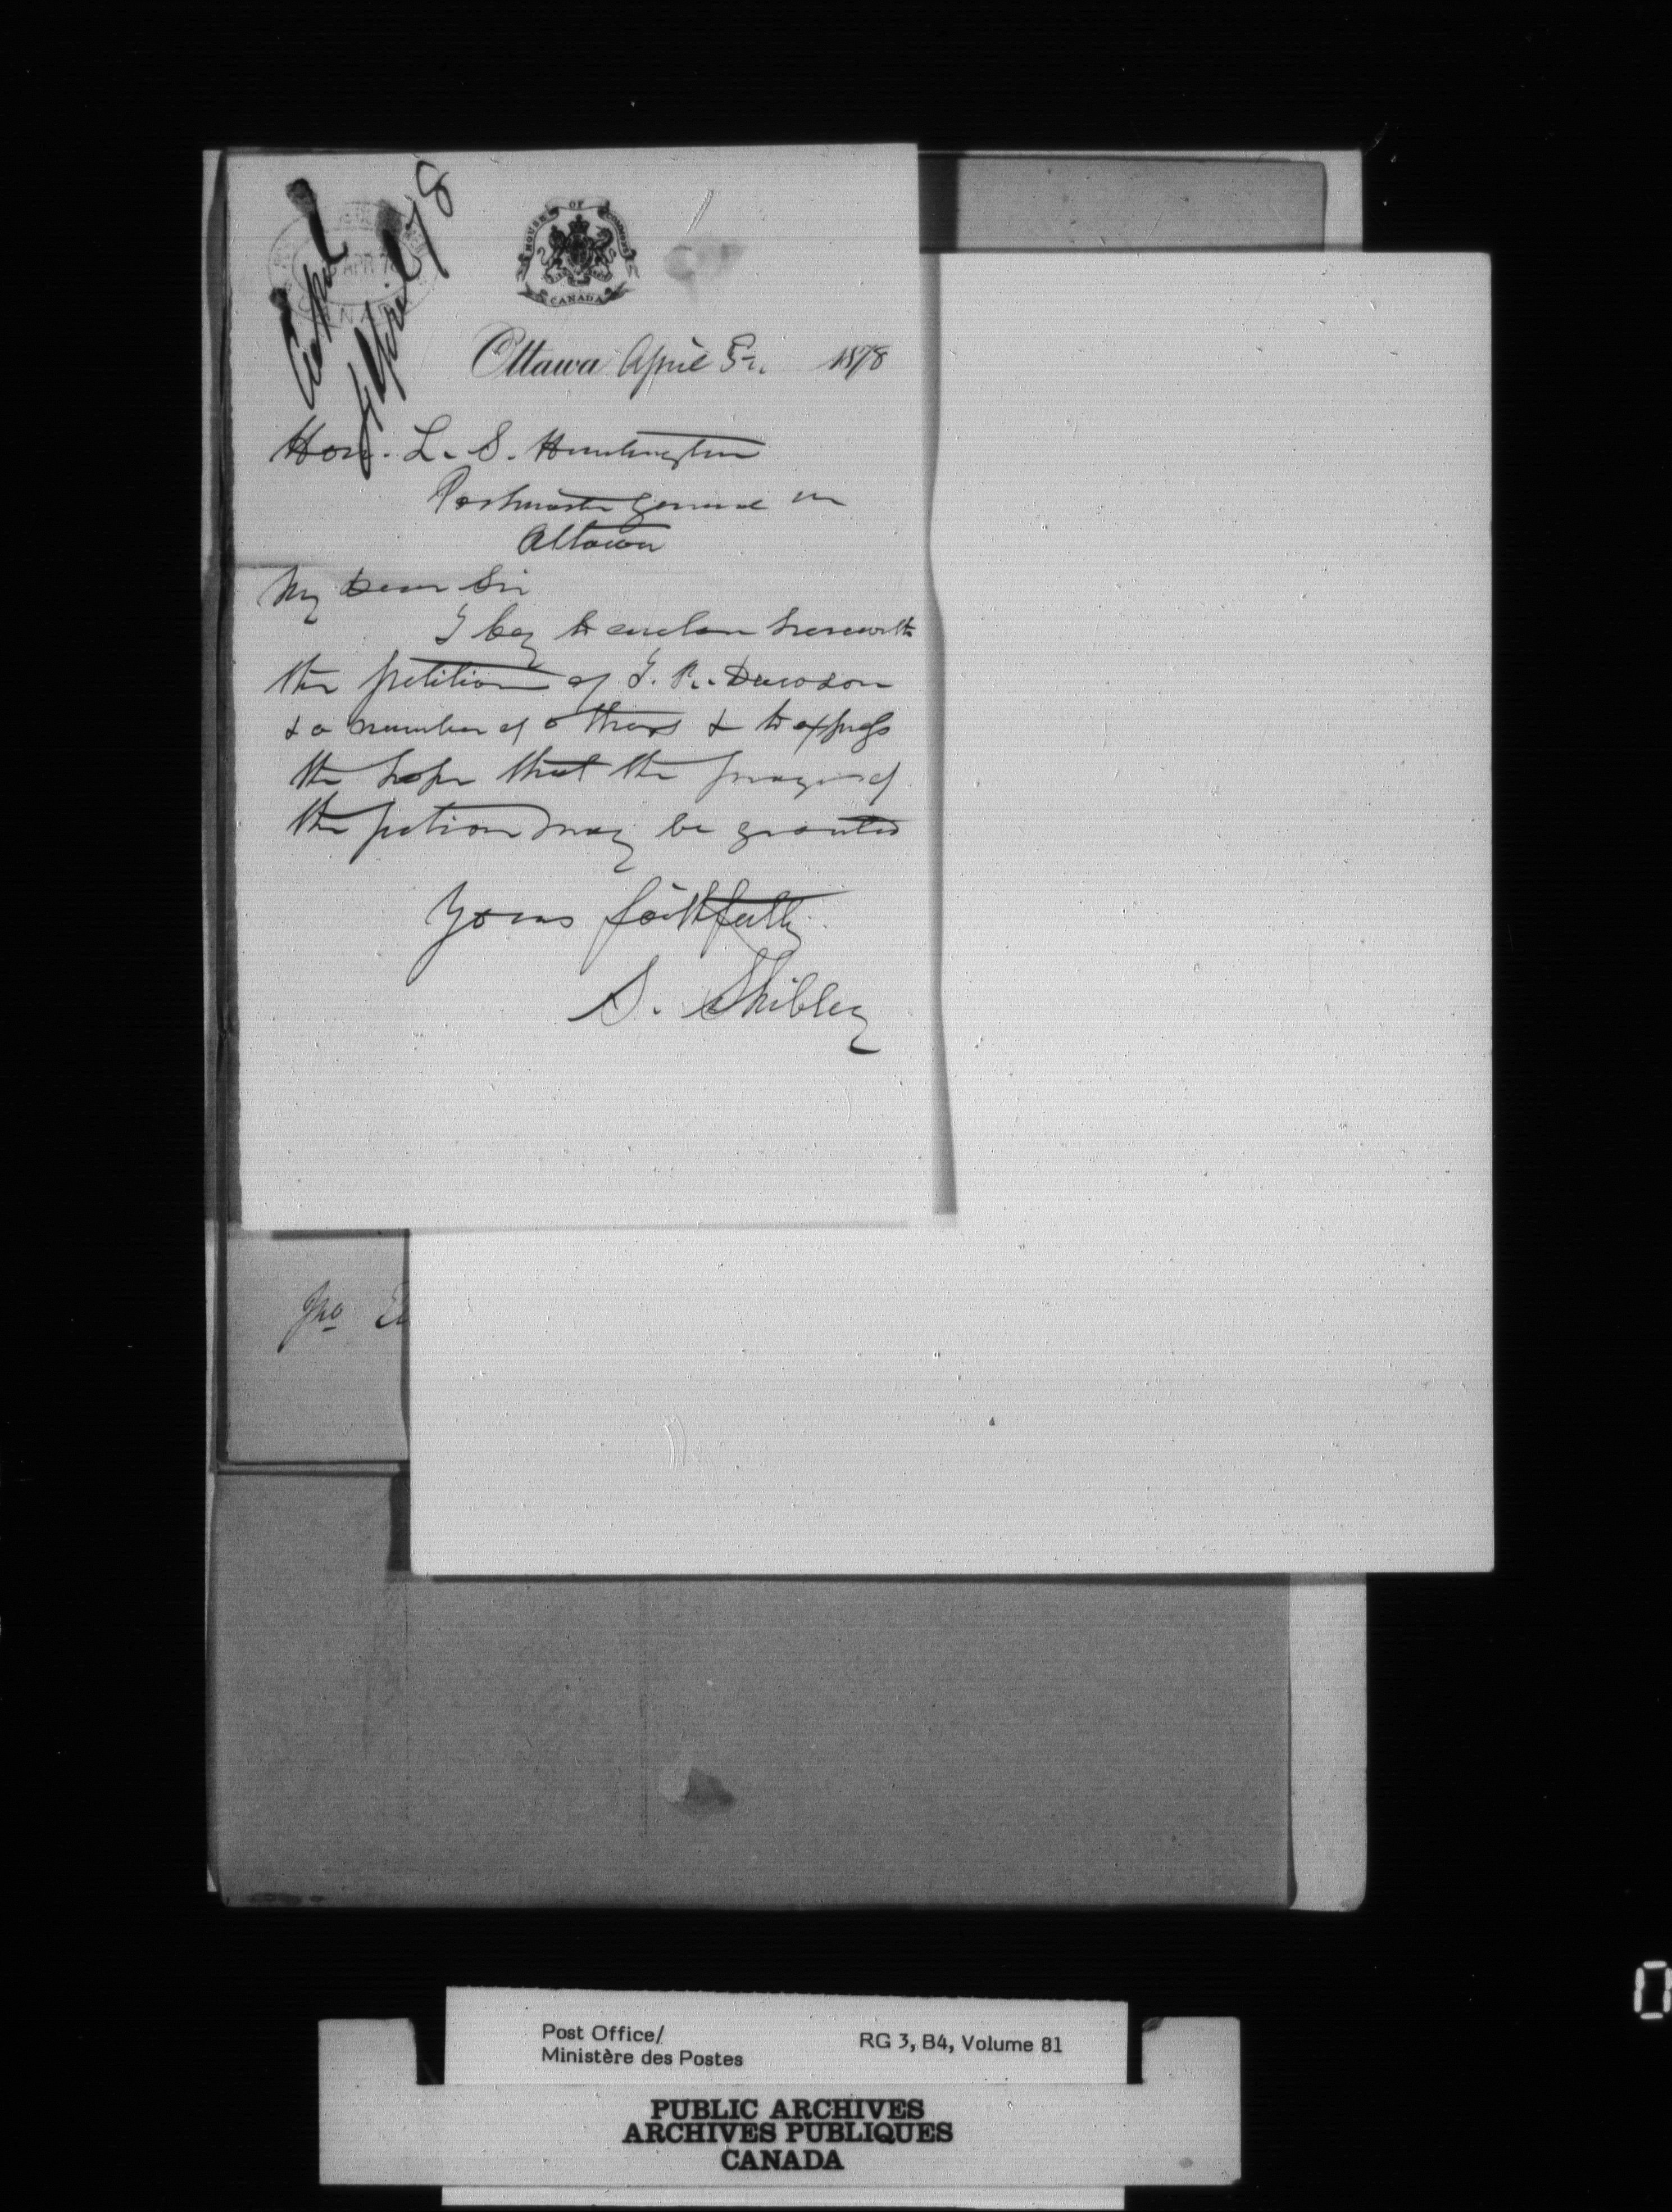 APR 78
April 78
HOUSE OF COMMONS
CANADA
Ottawa April 5th 1878
Hon. L. S. Huntington
Postmaster General
Ottawa
My Dear Sir
I beg to enclose herewith
the petition of J. R. Dawson
& a number of others & to express
the hope that the prayer of
the petion may be granted
Yours faithfully
S. Shibley
Jno
Post Office/
Ministère des Postes
RG 3, B4, Volume 81
PUBLIC ARCHIVES
ARCHIVES PUBLIQUES
CANADA